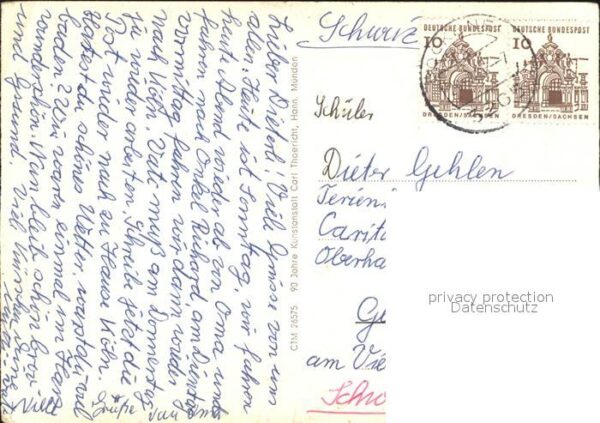 Lieber Dieter! Viele Grüsse von uns
allen. Heute ist Sonntag, wir fahren
heut Abend wieder ab von Oma und
fahren nach Onkel Richard, am Dienstag
vormittag fahren wir dann wieder
nach Köln. Vati muß am Donnerstag
ja wieder arbeiten. Schreib jetzt die
Post wieder nach zu Hause Köln.
Hattest du schönes Wetter, warst du viel
baden? Wir waren einmal im Harz
wunderschön. Nun bleib schön brav
und gesund. Viel
Viele
Grüße von
CTM 26575 90 Jahre Kunstanstalt Carl Thoericht, Hann. Münden
Schweiz
DEUTSCHE BUNDESPOST
10
DRESDEN/SACHSEN
DEUTSCHE BUNDESPOST
10
DRESDEN/SACHSEN
Schüler
Dieter Gehlen
Ferien
Carit
Oberha
Ge
am Vie
Schw
privacy protection
Datenschutz